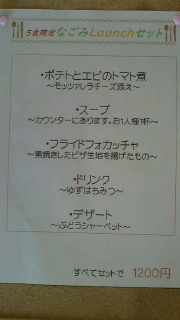 5食限定 なごみLaunchセット
・ポテトとエビのトマト煮
～モッツァレラチーズ添え～
・スープ
～カウンターにあります。お1人様1杯～
・フライドフォカッチャ
～素焼きしたピザ生地を揚げたもの～
・ドリンク
～ゆずはちみつ～
・デザート
～ぶどうシャーベット～
すべてセットで 1200円